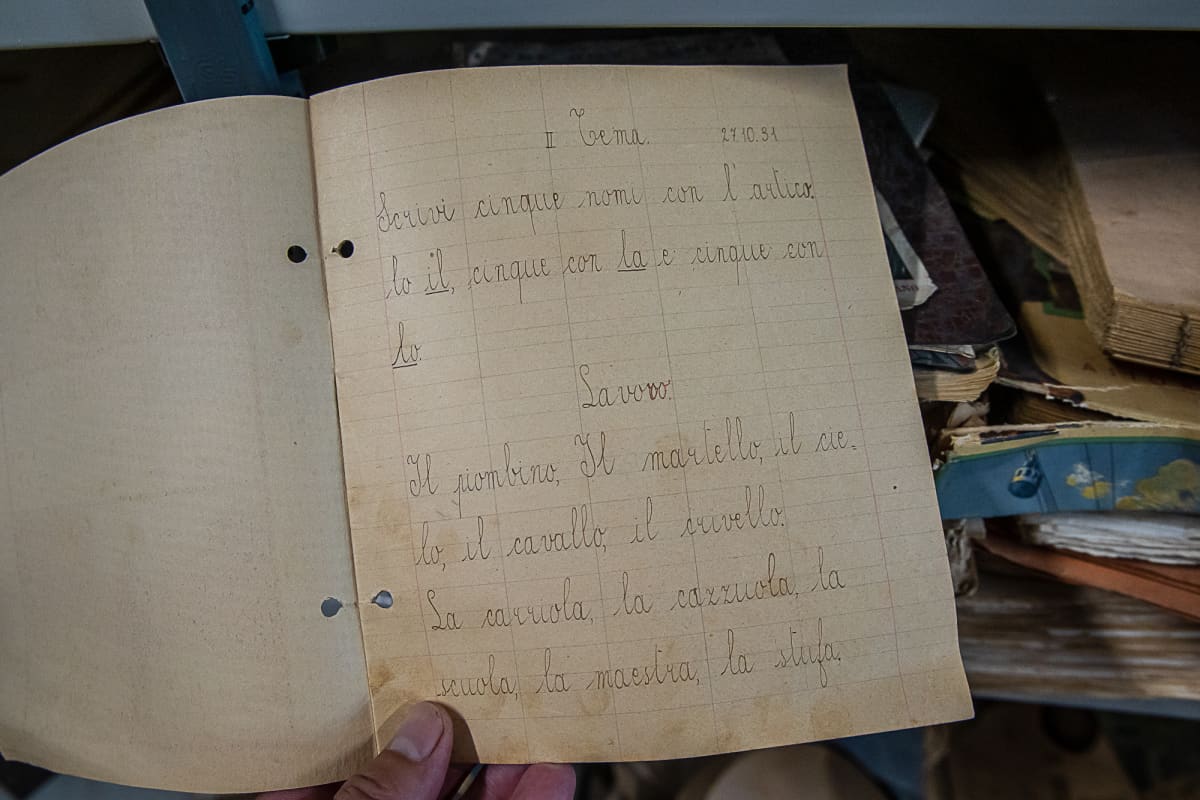 II Tema. 27.10.31
Scrivi cinque nomi con l'artico.
lo il, cinque con la e cinque con
lo.
Lavoro.
Il piombino, Il martello, il cie=
lo, il cavallo, il crivello.
La carriola, la cazzuola, la
scuola, la maestra, la stufa.